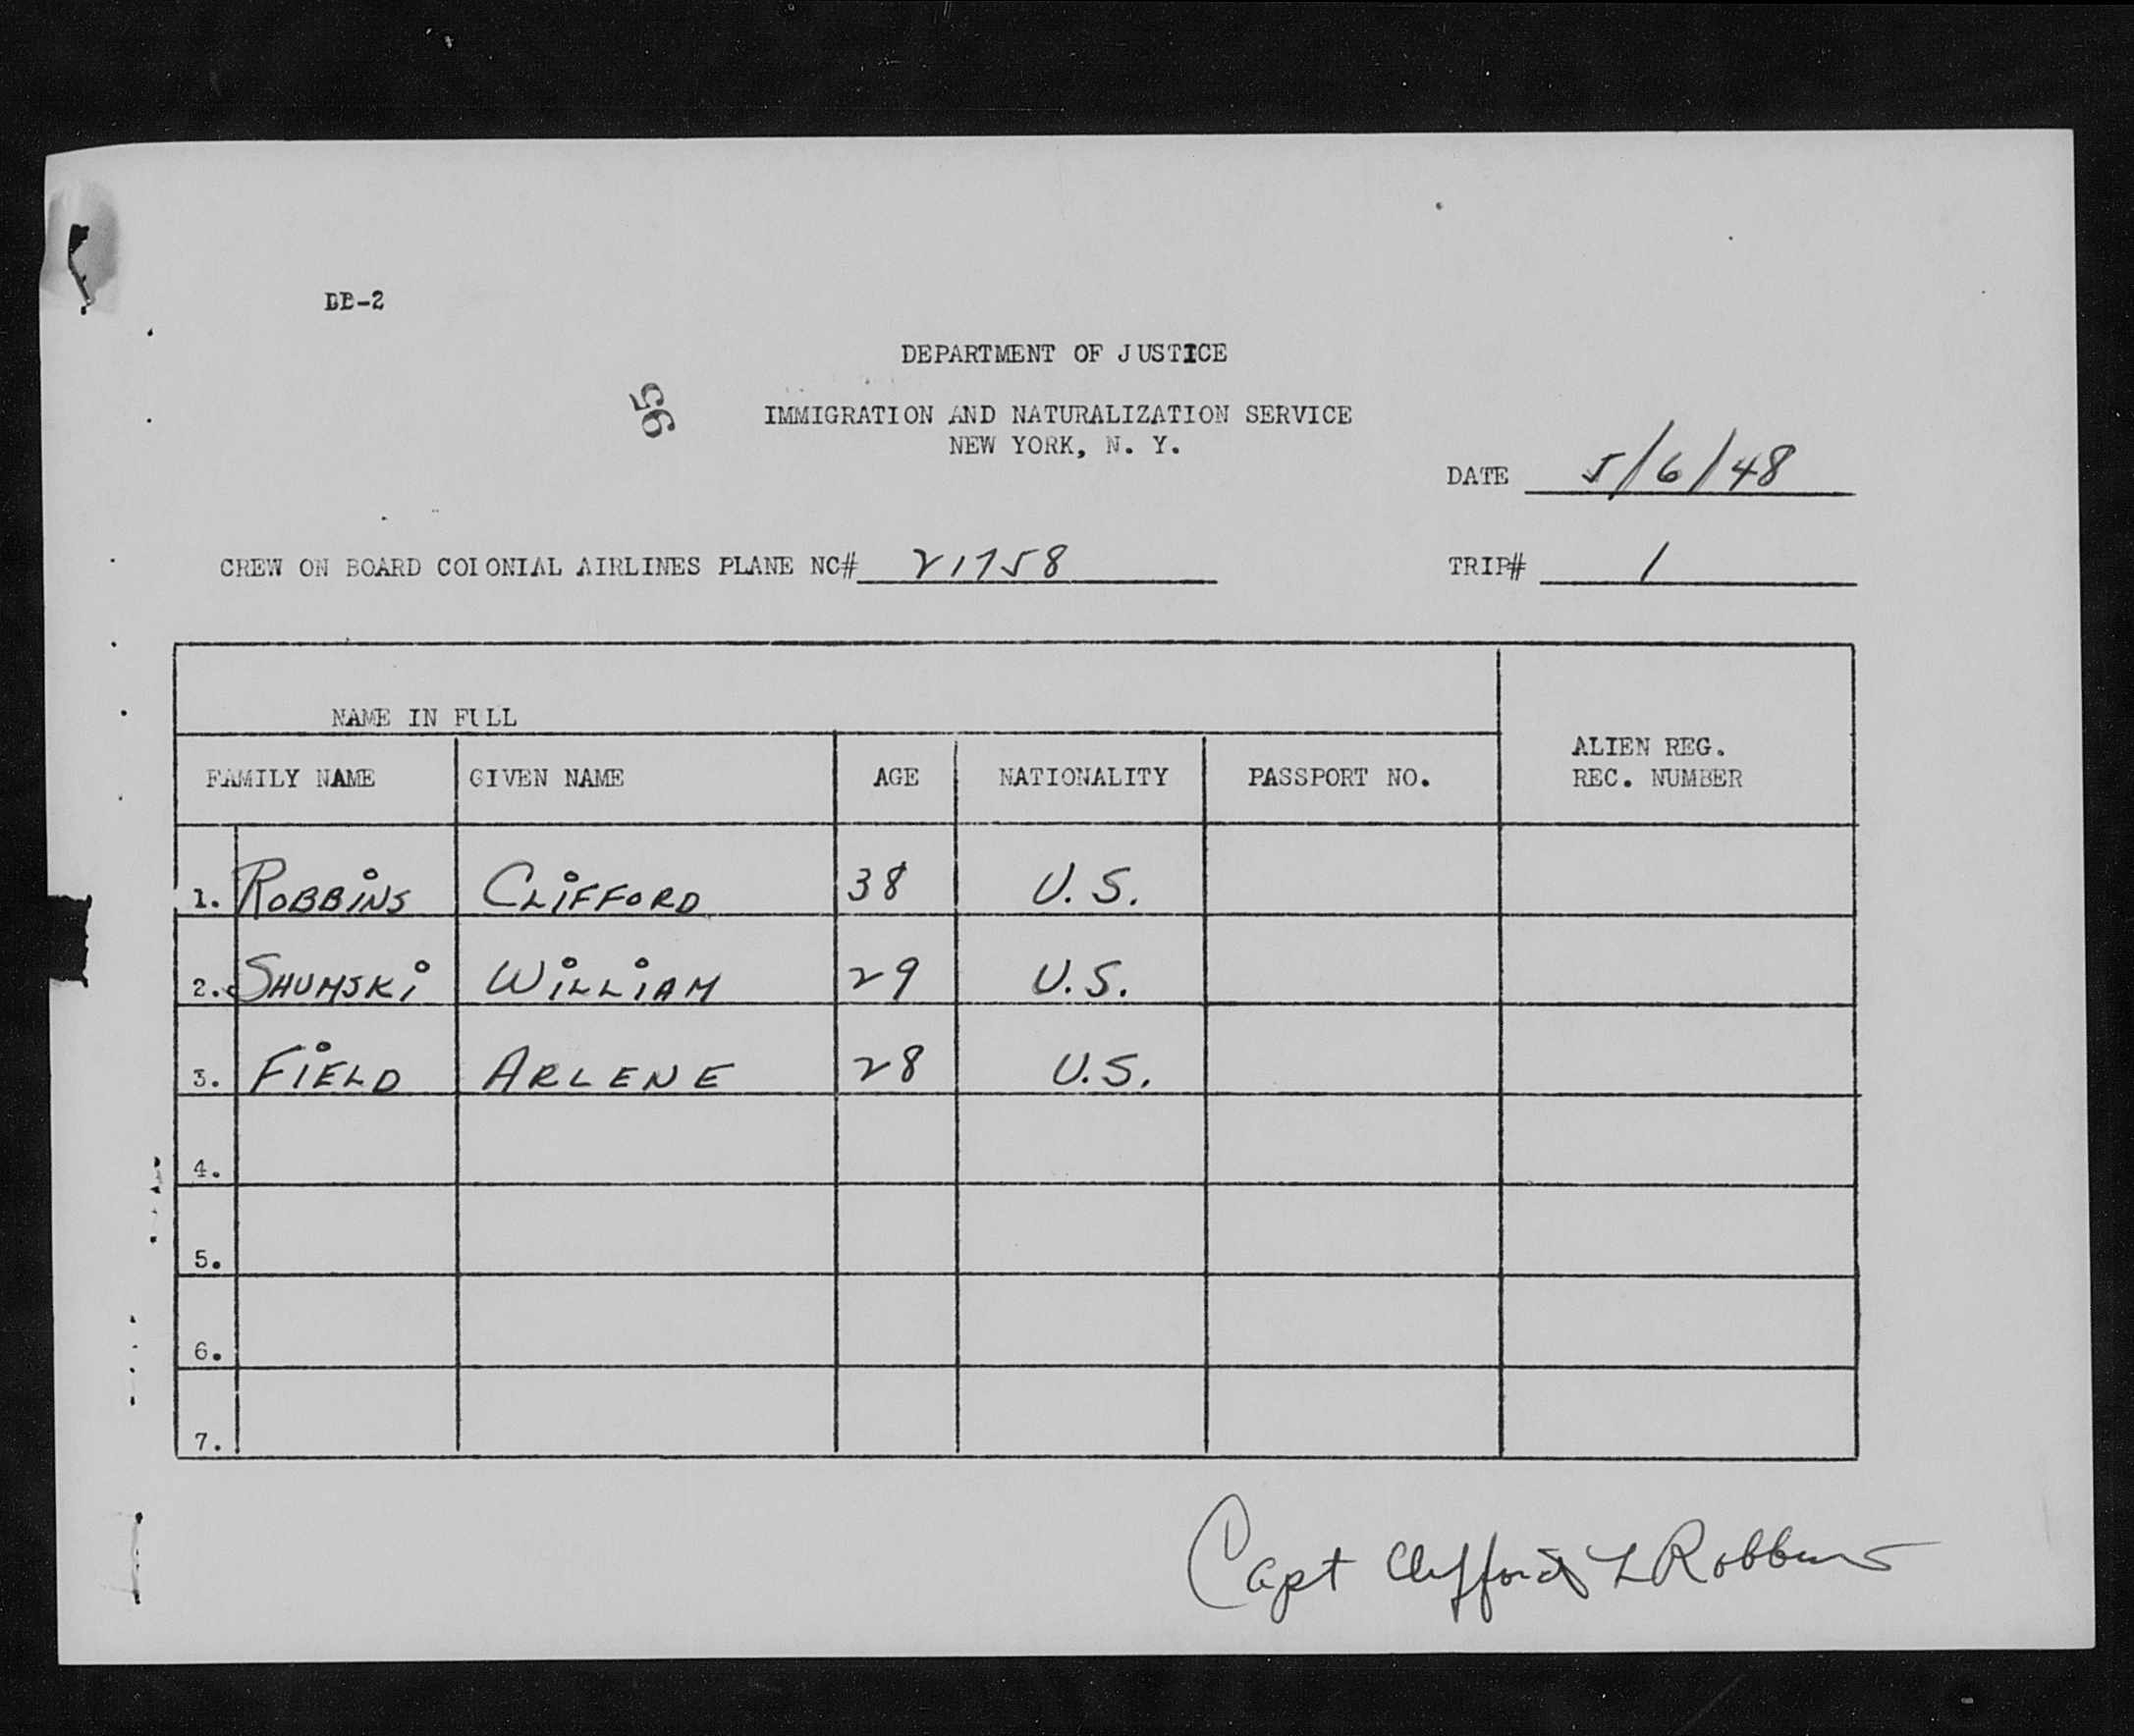 DB-2
DEPARTMENT OF JUSTICE
56
IMMIGRATION AND NATURALIZATION SERVICE
NEW YORK, N. Y.
DATE 5/6/48
CREW ON BOARD COLONIAL AIRLINES PLANE NC# 21758
TRIP# 1
NAME IN FULL
ALIEN REG.
REC. NUMBER
FAMILY NAME GIVEN NAME AGE NATIONALITY PASSPORT NO.
1. ROBBINS CLIFFORD 38 U.S.
2. SHUMSKI WILLIAM 29 U.S.
3. FIELD ARLENE 28 U.S.
4.
5.
6.
7.
Capt Clifford L Robbins